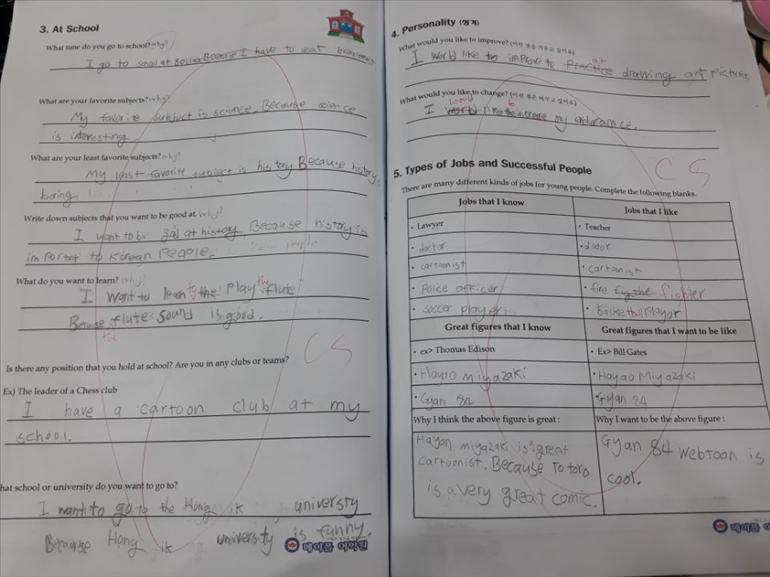 3. At School
What time do you go to school? why?
I go to school at Because I have to eat
What are your favorite subjects? why?
My favorite subject is science. Because science
is interesting.
What are your least favorite subjects? why?
My least favorite subject is history Because history
boring
Write down subjects that you want to be good at. why?
I want to be good at history. Because history is
important to Korean People.
What do you want to learn? why?
I want to learn to the play the flute
Because flute sound is good.
the
Is there any position that you hold at school? Are you in any clubs or teams?
CS
Ex) The leader of a Chess club
I have a cartoon club at my
school.
hat school or university do you want to go to?
I want to go to the Hong ik universty
Because Hong ik university is funny.
메이플 어학원
4. Personality (성격)
What would you like to improve?
I would like to improve to practice drawing art pictures
What would you like to change?
I would my endurance.
CS
5. Types of Jobs and Successful People
There are many different kinds of jobs for young people. Complete the following blanks.
Jobs that I know Jobs that I like
• Lawyer • Teacher
• doctor • doctor
• cartoonist • cartoonist
• Police officer • fire fighter
• soccer player • basketball player
Great figures that I know Great figures that I want to be like
• ex> Thomas Edison • Ex> Bill Gates
• Hayao miyazaki • Hayao Miyazaki
• Gyan 84 • Gyan 84
Why I think the above figure is great : Why I want to be the above figure :
Hayao miyazaki is great Gyan 84 webtoon is
cartoonist. Because Totoro cool.
is a very great comic.
메이플 어학원